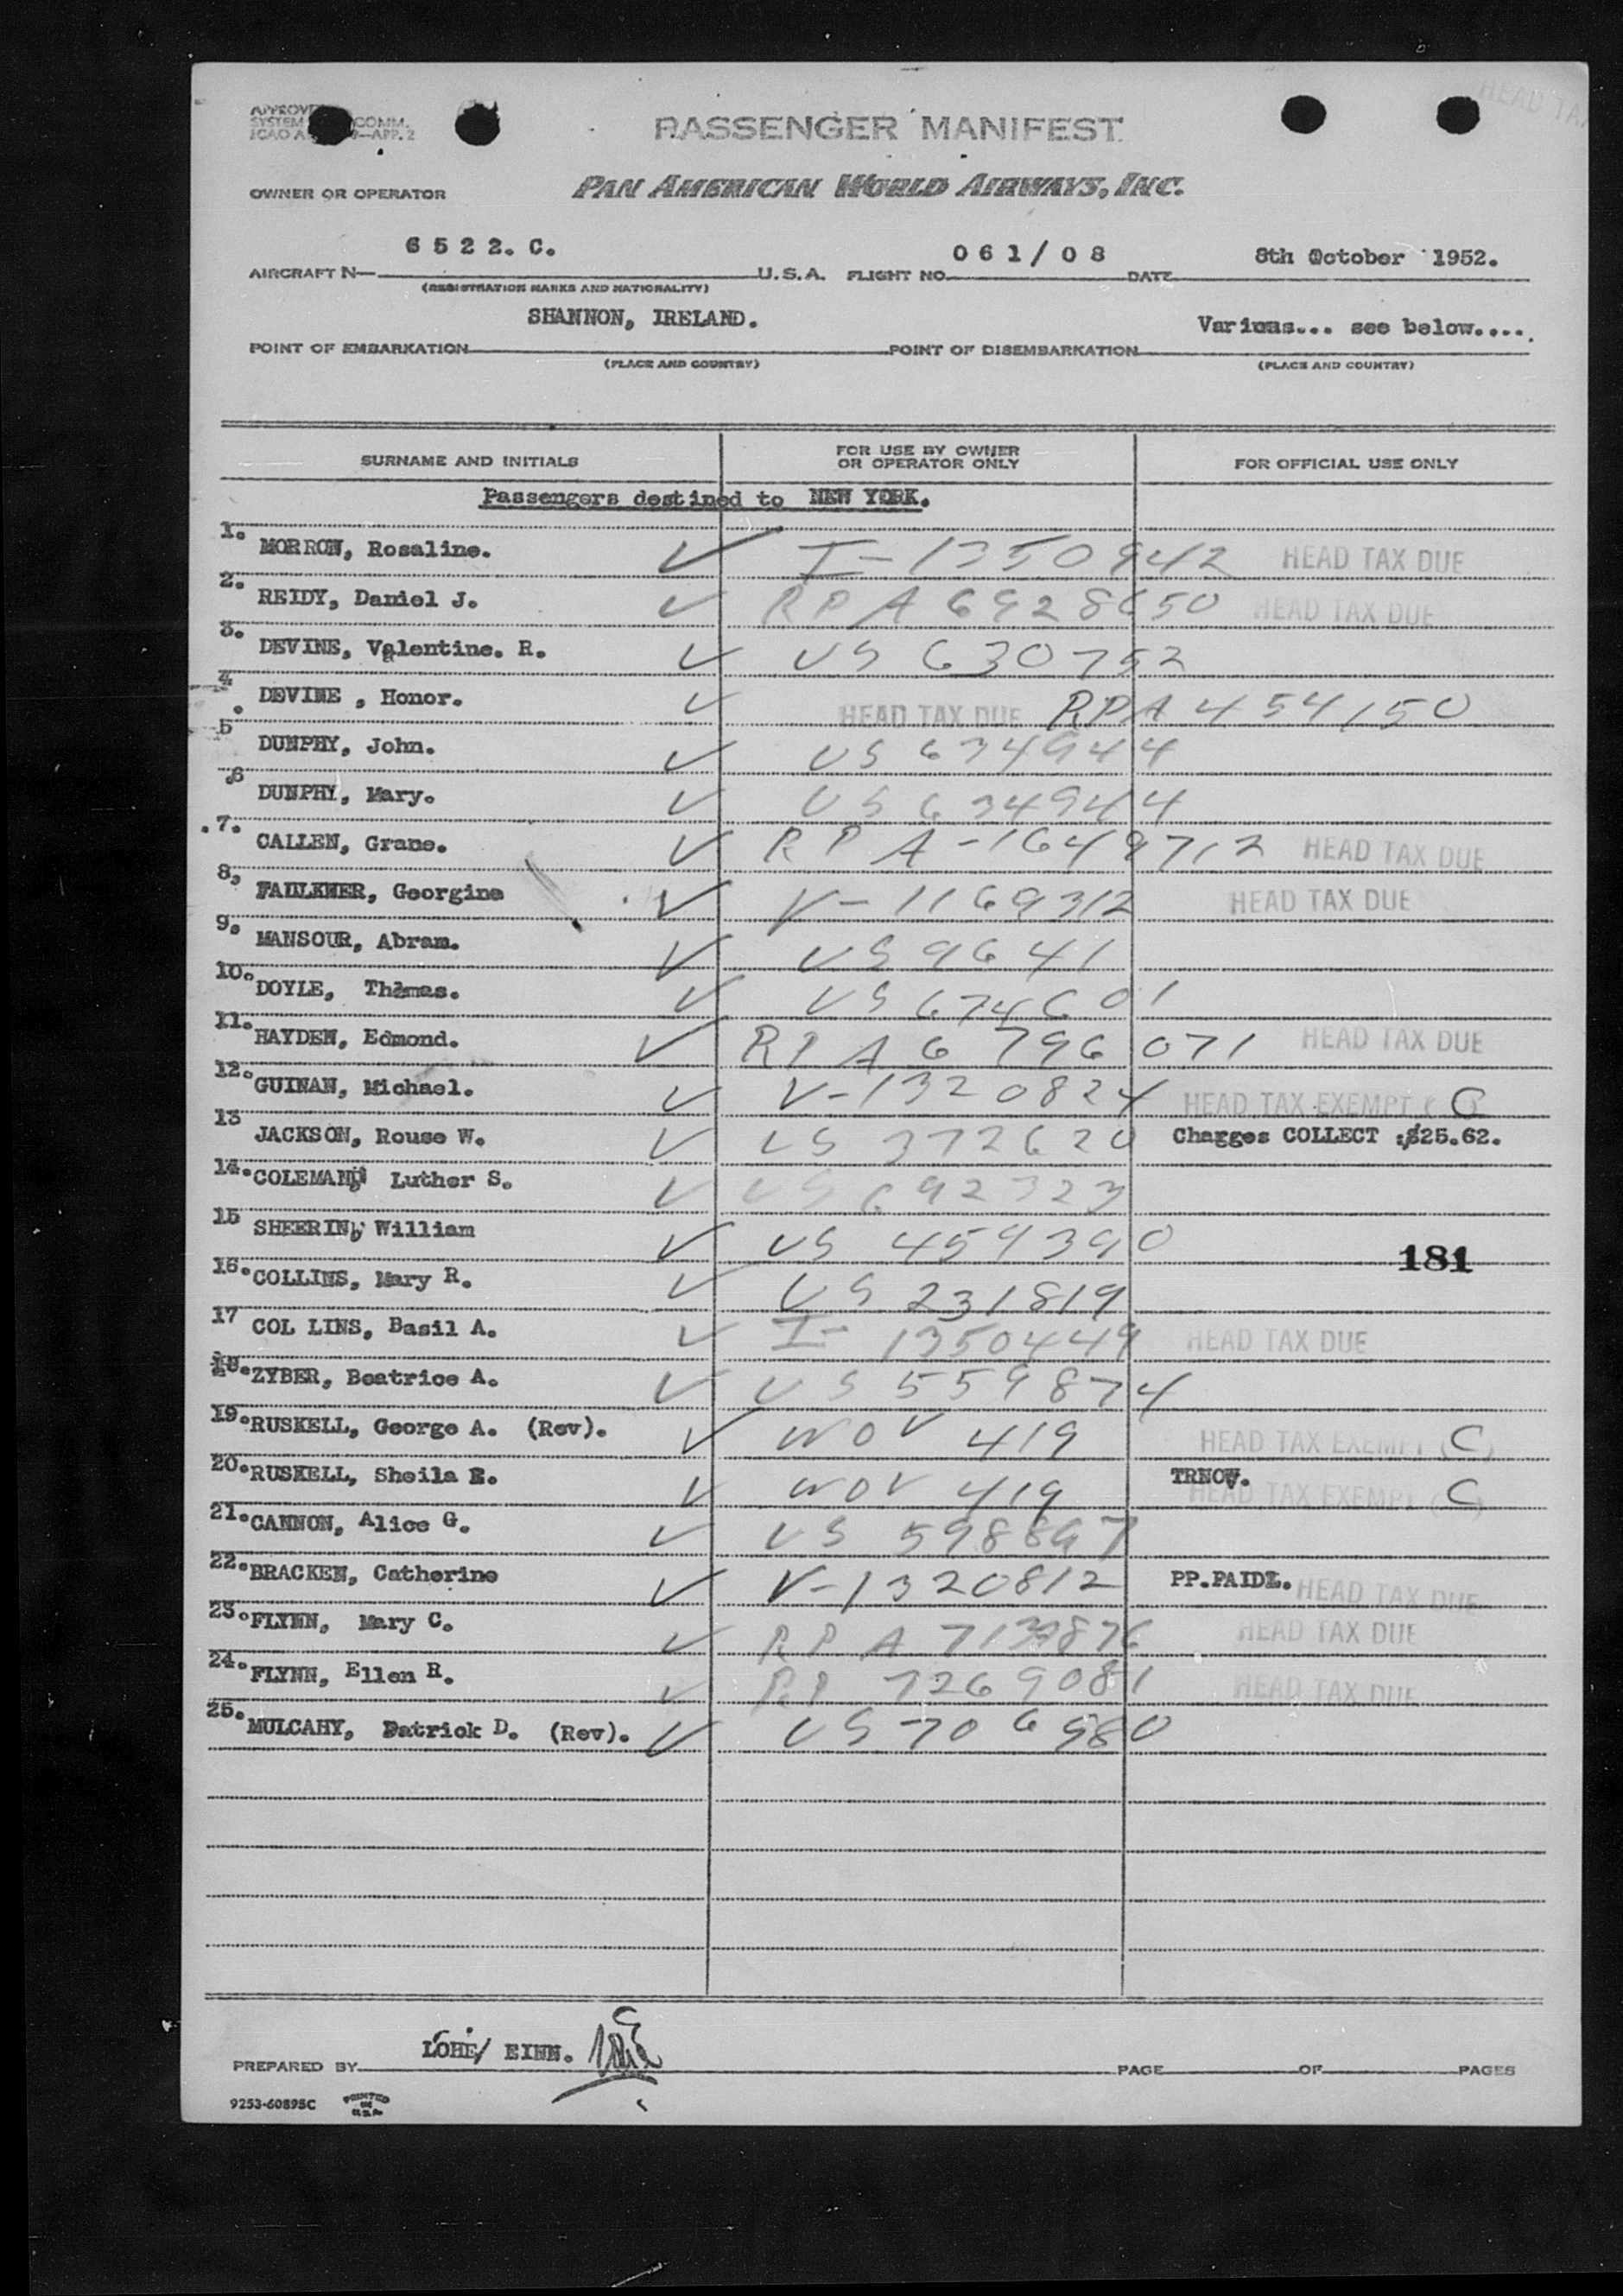 HEAD TA
APPROVE
SYSTEM COMM.
ICAO A 9—APP. 2
PASSENGER MANIFEST
OWNER OR OPERATOR PAN AMERICAN WORLD AIRWAYS, INC.
AIRCRAFT N— 6522. C. U.S.A. FLIGHT NO. 061/08 DATE 8th October 1952.
(REGISTRATION MARKS AND NATIONALITY)
POINT OF EMBARKATION SHANNON, IRELAND. POINT OF DISEMBARKATION Various... see below....
(PLACE AND COUNTRY) (PLACE AND COUNTRY)
SURNAME AND INITIALS FOR USE BY OWNER OR OPERATOR ONLY FOR OFFICIAL USE ONLY
Passengers destined to NEW YORK.
1. MORRON, Rosaline. ✓ I-1350942 HEAD TAX DUE
2. REIDY, Daniel J. ✓ RPA 6928650 HEAD TAX DUE
3. DEVINE, Valentine. R. ✓ US 630752
4. DEVINE , Honor. ✓ HEAD TAX DUE RPA 454150
5 DUNPHY, John. ✓ US 634944
6 DUNPHY, Mary. ✓ US 634944
7. CALLEN, Grane. ✓ RPA-1649712 HEAD TAX DUE
8, FAULKNER, Georgine ✓ V-1169312 HEAD TAX DUE
9. MANSOUR, Abram. ✓ US 9641
10. DOYLE, Thomas. ✓ US 674601
11. HAYDEN, Edmond. ✓ RPA 6796071 HEAD TAX DUE
12. GUINAN, Michael. ✓ V-1320824 HEAD TAX EXEMPT (C)
13 JACKSON, Rouse W. ✓ US 372620 Charges COLLECT :$25.62.
14. COLEMAN, Luther S. ✓ US 692323
15 SHEERIN, William ✓ US 459390
181
16. COLLINS, Mary R. ✓ US 231819
17 COL LINS, Basil A. ✓ I-1350449 HEAD TAX DUE
18. ZYBER, Beatrice A. ✓ US 559874
19. RUSKELL, George A. (Rev). ✓ WOV 419 HEAD TAX EXEMPT (C)
20. RUSKELL, Sheila E. ✓ WOV 419 TRNOV. HEAD TAX EXEMPT (C)
21. CANNON, Alice G. ✓ US 598897
22. BRACKEN, Catherine ✓ V-1320812 PP.PAID. HEAD TAX DUE
23. FLYNN, Mary C. ✓ RPA 7139876 HEAD TAX DUE
24. FLYNN, Ellen R. ✓ RP 7269081 HEAD TAX DUE
25. MULCAHY, Patrick D. (Rev). ✓ US 706980
PREPARED BY LOHE/ EINN. PAGE OF PAGES
9253-60895C PRINTED IN U.S.A.